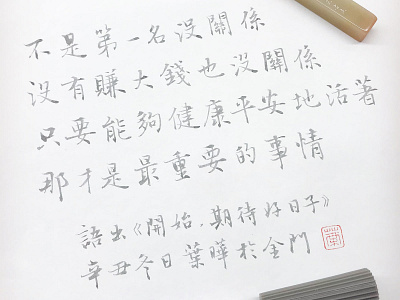 不是第一名沒關係
沒有賺大錢也沒關係
只要能夠健康平安地活著
那才是最重要的事情
語出《開始，期待好日子》
辛丑冬日葉曄於金門